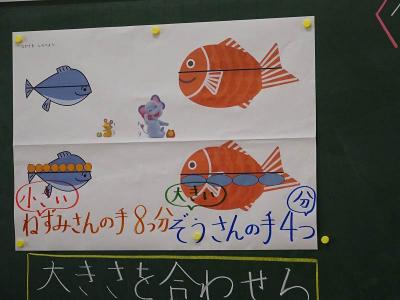 小さい
大きい
分
ねずみさんの手8つ分
ぞうさんの手4つ
大きさを合わせら